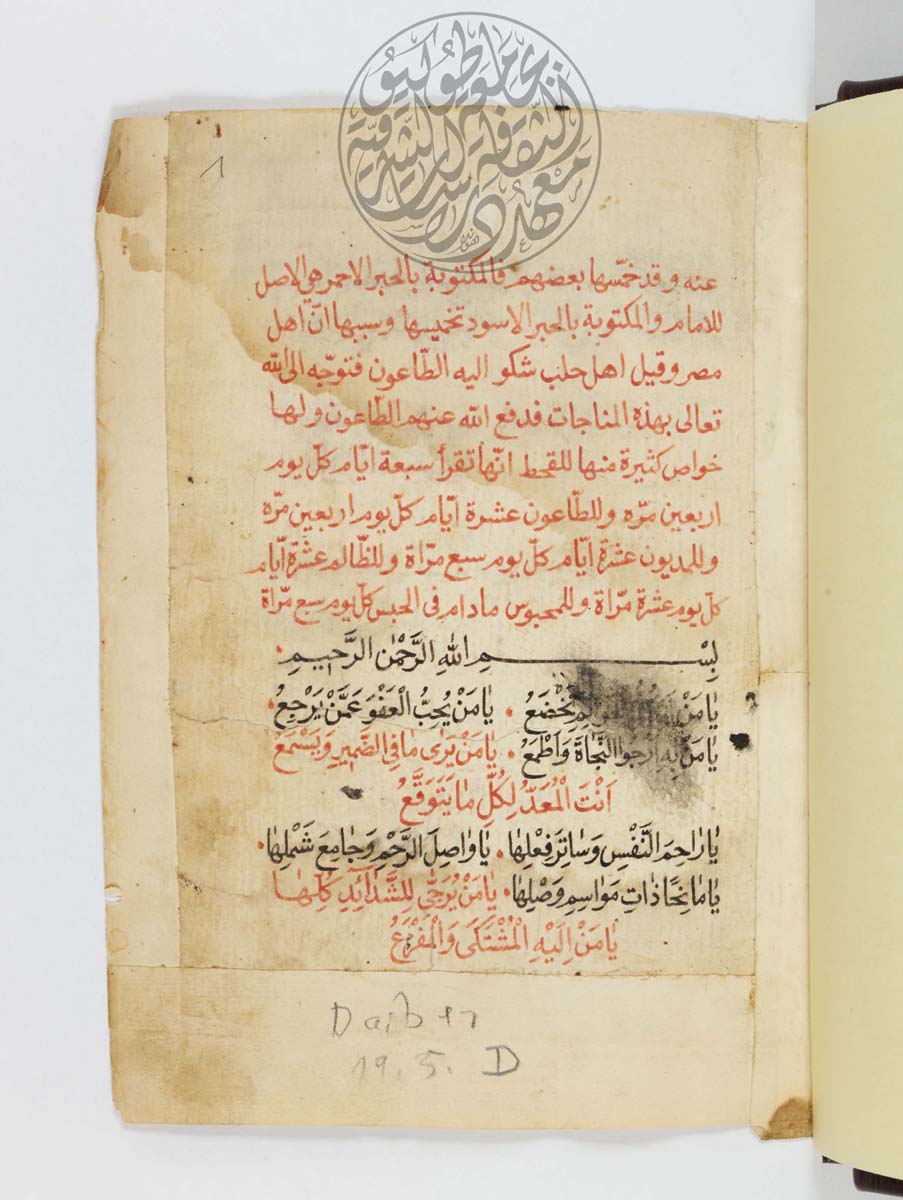 ١
عنه وقد خمّسها بعضهم فالمكتوبة بالحبر الاحمر هي الاصل
للامام والمكتوبة بالحبر الاسود تخميسها وسببها انّ اهل
مصر وقيل اهل حلب شكو اليه الطّاعون فتوجّه الى الله
تعالى بهذه المناجات فدفع الله عنهم الطّاعون ولها
خواص كثيرة منها للقحط انّها تقرأ سبعة ايّام كلّ يوم
اربعين مرّه وللطّاعون عشرة ايّام كلّ يوم اربعين مرّه
وللمديون عشرة ايّام كلّ يوم سبع مرّاة وللظّالم عشرة ايّام
كلّ يوم عشرة مرّاة وللمحبوس مادام فى الحبس كلّ يوم سبع مرّاة
بِسْمِ اللهِ الرَّحْمٰنِ الرَّحِيمِ
يٰا مَنْ تَخْضَعُ • يٰا مَنْ يُحِبُّ الْعَفْوَ عَمَّنْ يَرْجِعُ •
يٰا مَنْ بِهِ اَرْجُوا النَّجٰاةَ وَاَطْمَعُ • يٰا مَنْ يَرٰى مٰا فِى الضَّمِيرِ وَيَسْمَعُ
اَنْتَ الْمُعَدُّ لِكُلِّ مٰا يَتَوَقَّعُ
يٰا رٰاحِمَ النَّفْسِ وَسٰاتِرَ فِعْلِهٰا • يٰا وٰاصِلَ الرَّحْمِ وَجٰامِعَ شَمْلِهٰا •
يٰا مٰانِحًا ذٰاتِ مَوٰاسِمِ وَصْلِهٰا • يٰا مَنْ يُرَجّٰى لِلشَّدٰآئِدِ كُلِّهٰا
يٰا مَنْ اِلَيْهِ الْمُشْتَكَى وَالْمَفْزَعُ
Daiber
19. 5. D